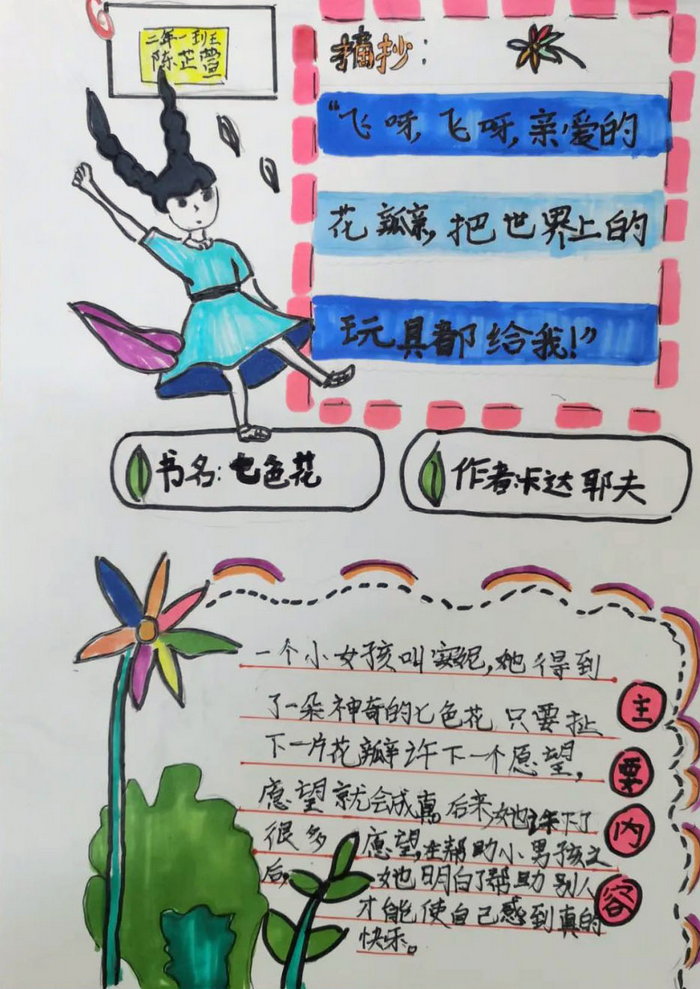 二年一班
陈芷萱
摘抄：
“飞呀，飞呀，亲爱的
花瓣，把世界上的
玩具都给我！”
书名：七色花
作者卡达耶夫
一个小女孩叫妮，她得到
了一朵神奇的七色花 只要扯
下一片花瓣许下一个愿望，
愿望就会成真 后来，她许下了
很多 愿望，在帮助小男孩之
后， 她明白了帮助别人
才能使自己感到真的
快乐。
主
要
内
容